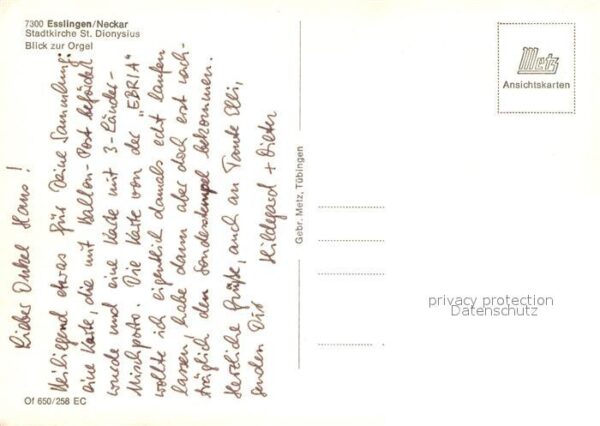 7300 Esslingen/Neckar
Stadtkirche St. Dionysius
Blick zur Orgel
Lieber Onkel Hans!
Beiliegend etwas für Deine Sammlung:
eine Karte, die mit Ballon-Post befördert
wurde und eine Karte mit 3-Länder-
Mischporto. Die Karte von der "EBRIA"
wollte ich eigentlich damals echt laufen
lassen, habe dann aber doch erst nach-
träglich den Sonderstempel bekommen.
Herzliche Grüße, auch an Tante Elli,
senden Dir
Hildegard + Dieter
Of 650/258 EC
Gebr. Metz, Tübingen
Metz
Ansichtskarten
privacy protection
Datenschutz